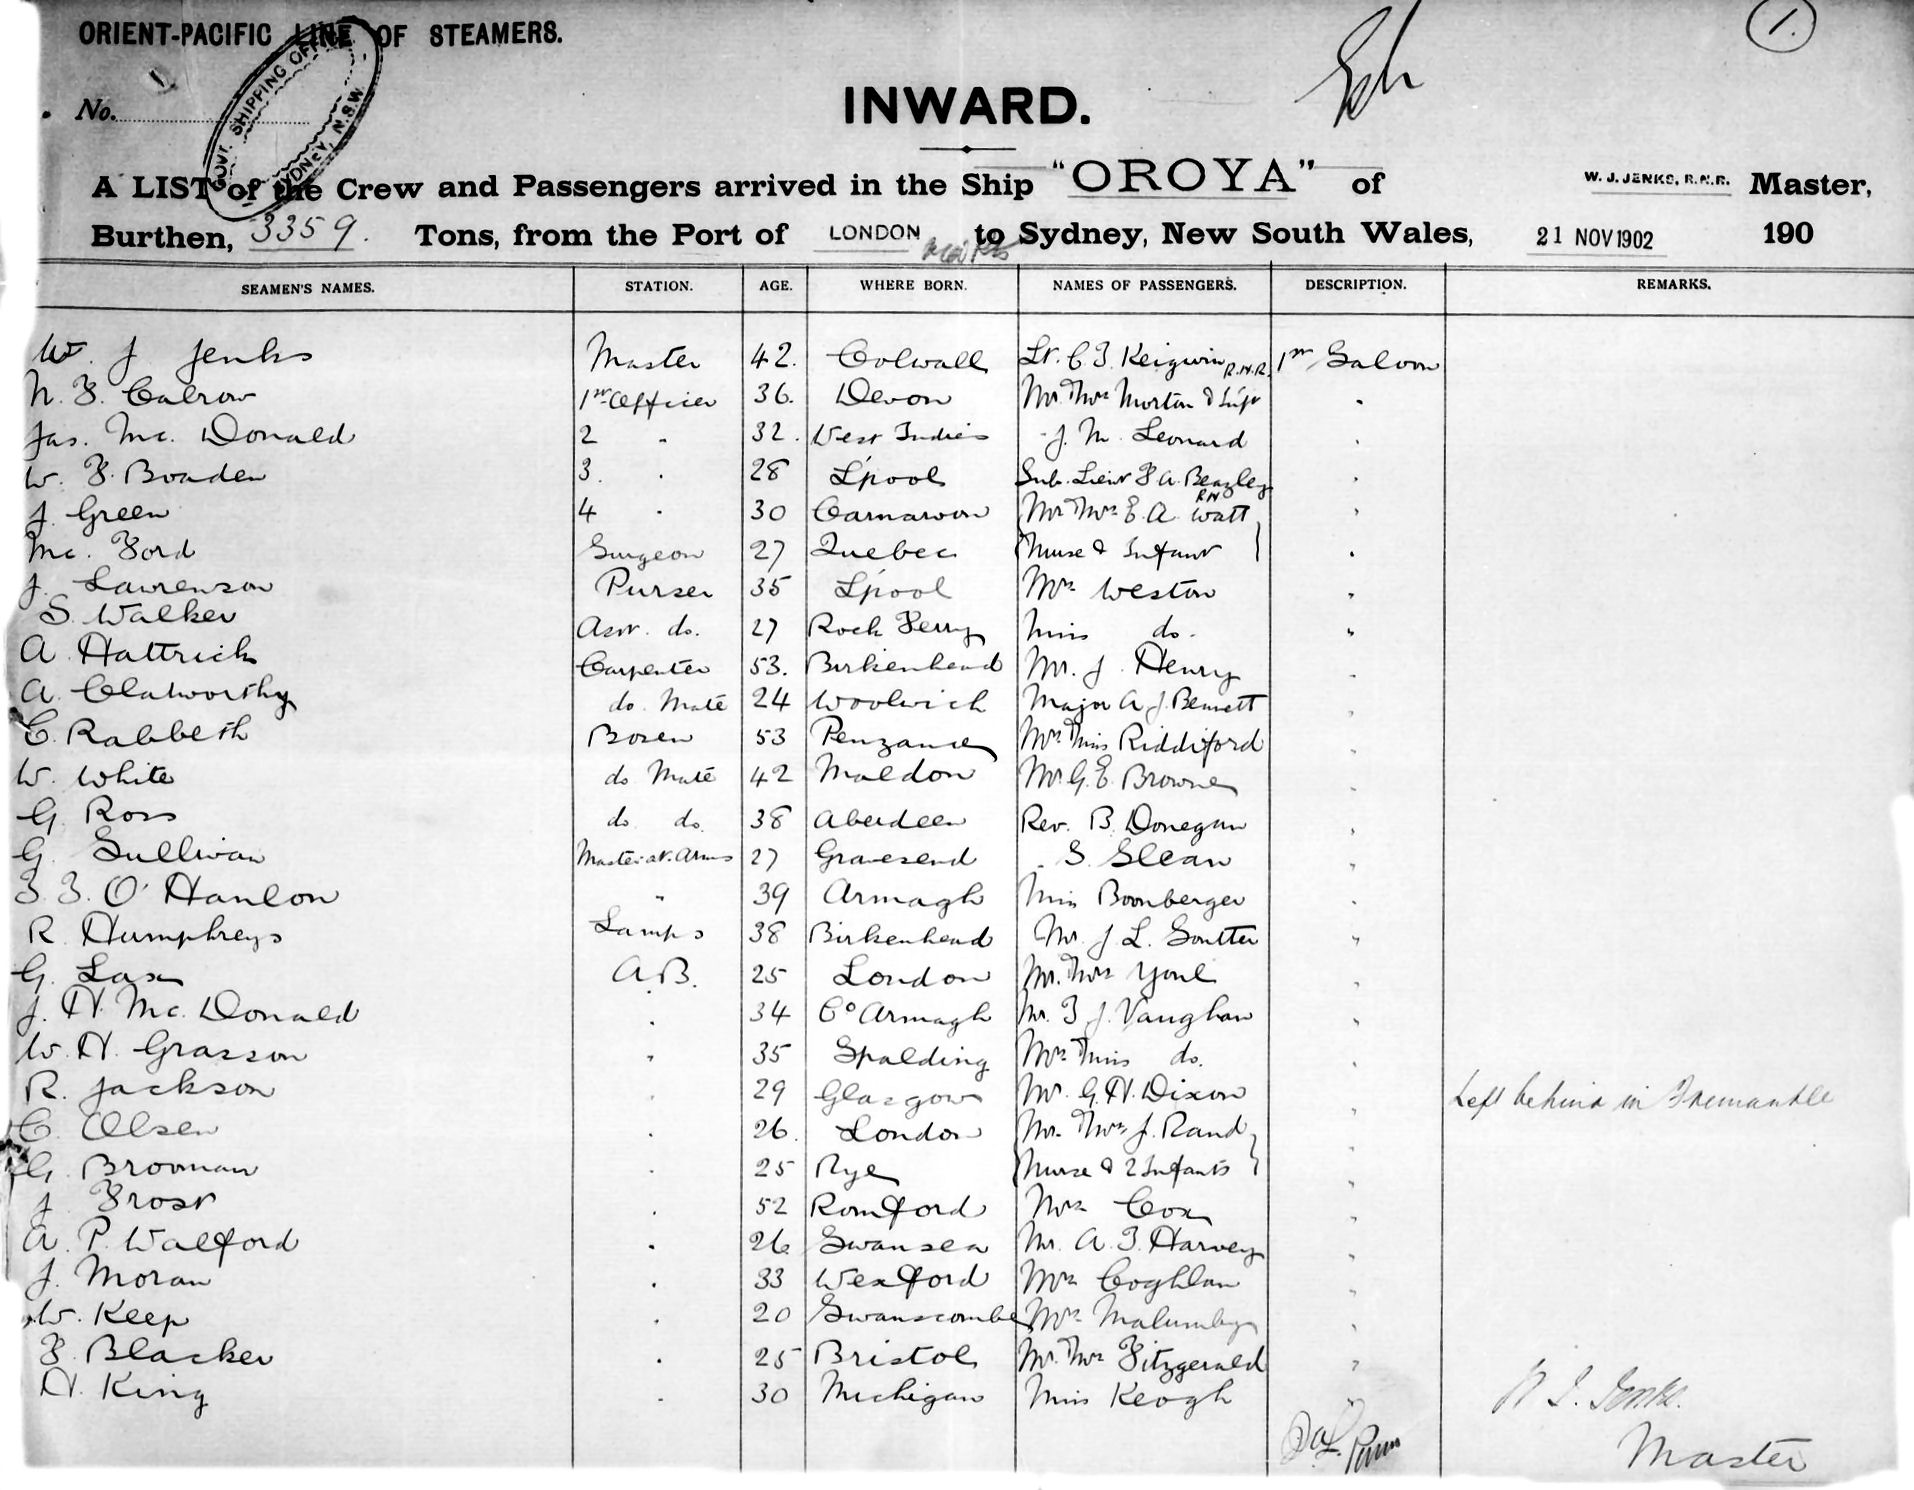 ORIENT-PACIFIC LINE OF STEAMERS.
1.
No. 1
GOVT. SHIPPING OFFICE SYDNEY, N.S.W.
INWARD.
A LIST of the Crew and Passengers arrived in the Ship "OROYA" of W. J. JENKS, R.N.R. Master,
Burthen, 3359. Tons, from the Port of LONDON to Sydney, New South Wales, 21 NOV 1902 190
SEAMEN'S NAMES. STATION. AGE. WHERE BORN. NAMES OF PASSENGERS. DESCRIPTION. REMARKS.
W. J Jenks Master 42. Colwall Lt. C. F. Keigwin R.N.R. 1st Saloon
N. F. Calrow 1st Officer 36. Devon Mr. & Mrs Morton & Inft "
Jas. Mc. Donald 2 " 32. West Indies " J. M. Leonard "
W. F. Boaden 3. " 28 L'pool Sub. Lieut F. A. Beazley RN "
J. Green 4 " 30 Carnarvon Mr & Mrs E. A. Watt "
Mc. Ford Surgeon 27 Quebec Nurse & Infant "
J. Lawrenson Purser 35 L'pool Mrs Weston "
S. Walker Asst. do. 27 Rock Ferry Miss do. "
A Hattrick Carpenter 53. Birkenhead Mr. J. Henry "
A. Clatworthy do. Mate 24 Woolwich Major A. J. Bennett "
C. Rabbeth Bosen 53 Penzance Mrs & Miss Riddiford "
W. White do Mate 42 Maldon Mr. G. E. Browne "
G. Ross do do. 38 Aberdeen Rev. B. Donegan "
G. Sullivan Master at. Arms 27 Gravesend " S. Slean "
F. F. O'Hanlon " 39 Armagh Miss Boonberger "
R Humphreys Lamps 38 Birkenhead Mr. J. L. Soutter "
G. Lax A.B. 25 London Mr. & Mrs Youl "
J. H. Mc. Donald " 34 Co Armagh Mr. F. J. Vaughan "
W. H. Grasson " 35 Spalding Mrs & Miss do. "
R. Jackson " 29 Glasgow Mr. G. H. Dixon " Left behind in Fremantle
C. Olsen " 26. London Mr. & Mrs J. Rand "
G. Brooman " 25 Rye Nurse & 2 Infants "
J Frost " 52 Romford Mrs Cox "
A. P. Walford " 26 Swansea Mr. A. F. Harvey "
J. Moran " 33 Wexford Mrs Coghlan "
W. Keep " 20 Swanscombe Mrs Malumby "
F. Blacker " 25 Bristol Mr. & Mrs Fitzgerald "
H. King " 30 Michigan Miss Keogh "
W J. Jenks.
Master